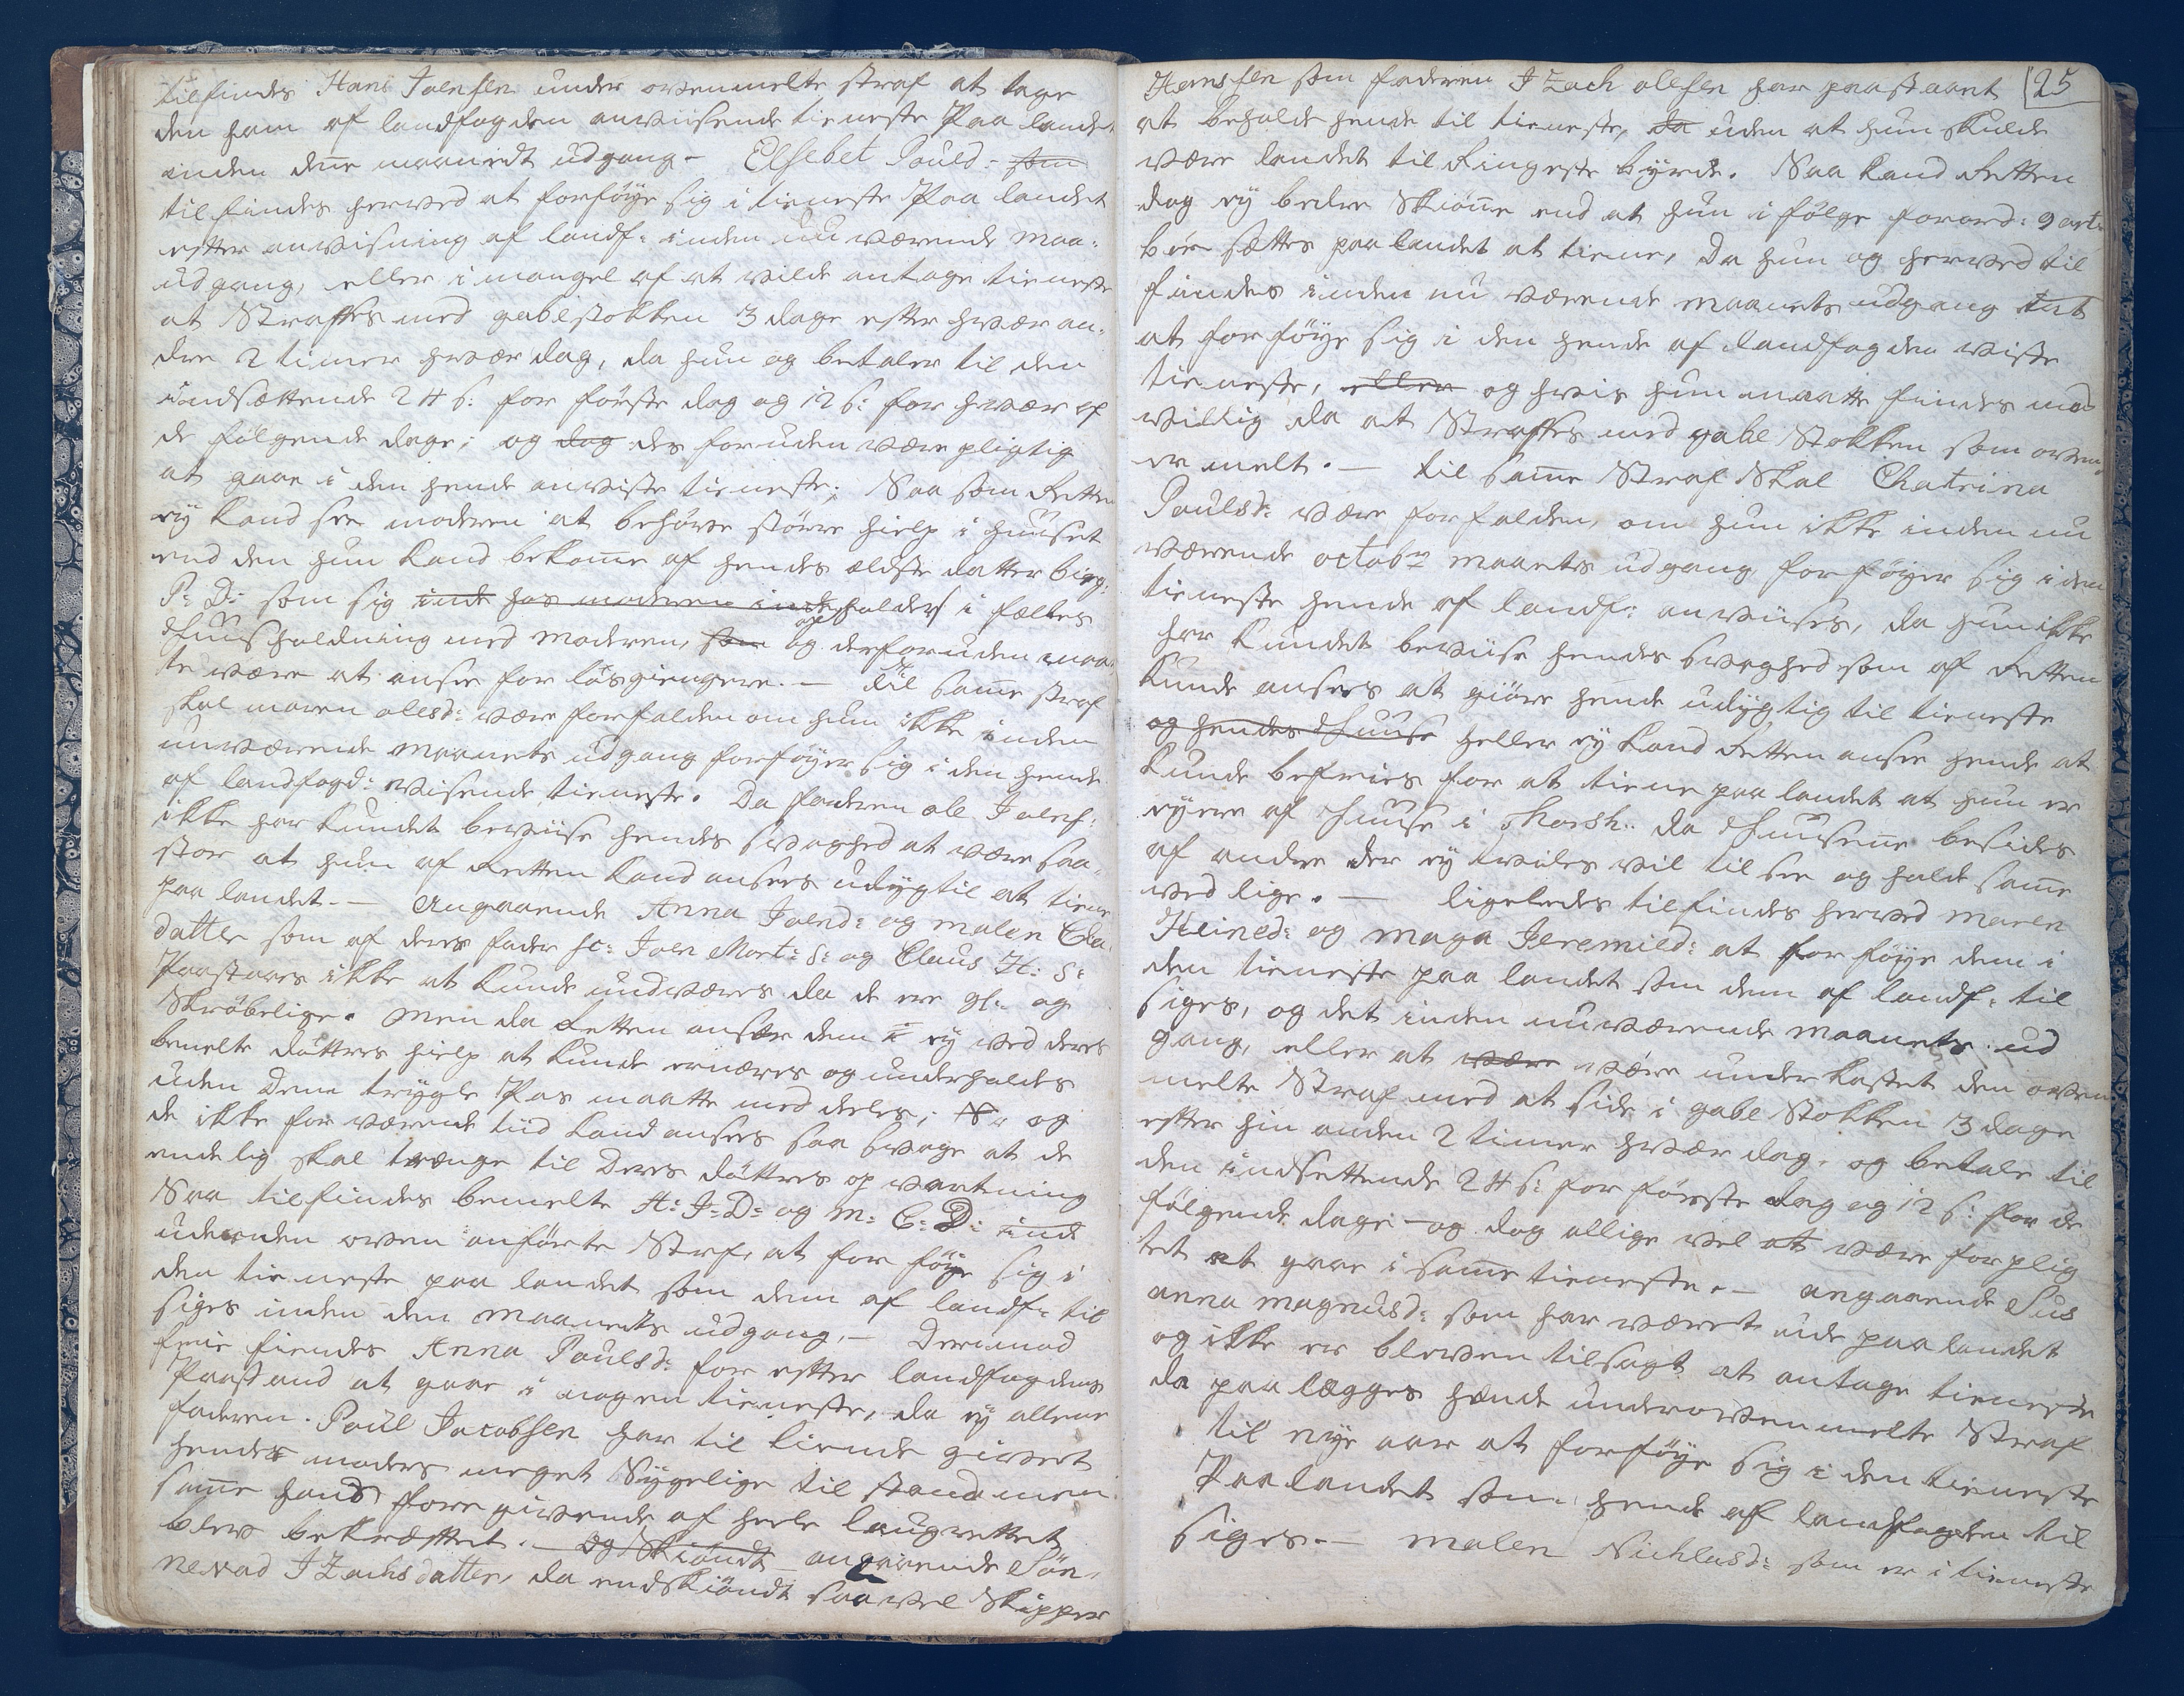 tilfindes Hans Joensen under ovenmelte straf at tage
den ham af landfogden anviisende tieneste Paa landet
inden dene maanedt udgang – Elsebet Pouls D: som
tilfindes herved at forføye sig i tieneste Paa landet
efter anvisning af landf: inden nu værende maa:
udgang, eller i mangel af at vilde antage tieneste
at Straffes med gabestokken 3 dage efter hver an-
dre 2 timer hver dag, da hun og betaler til den
indsættende 24 s: for første dag og 12 s: for hver af
de følgende dage; og dog des foruden være pligtig
at gaae i den hende anviiste tieneste; Saa som Retten
ey kand see moderen at behøve større hielp i huuset
end den hun kand bekome af hendes ældste datter
P: D: som sig inde hos moderen inde holder i fælles
Huusholdning med moderen, som og derforuden maa-
te være at ansee for løsgiengere. – Til same straf
skal maren olesd: være forfalden om hun ikke inden
nuværende maanets udgang forføyer sig i den hende
af landfogd: viisende tieneste. Da faderen ole Joens:
ikke har kundet beviise hendes svaghed at være saa-
stor at hun af Retten kand ansees udygtil at tiene
paa landet. – Angaaende Anna Joensd: og malen Cla:
datter som af deres fader Joen Mort: S: og Claus H: S:
Paastaaes ikke at kunde undværes da de ere gl: og
Skrøbelige. Men da Retten ansee dem ey ved deres
bemelte døttres hielp at kunde ernæres og underholdes
uden Dem trygle Pas maatte meddeles; og
de ikke for værende tiid kand ansees saa svage at de
endelig skal trænge til Deres døttres opvartning
Saa tilfindes bemelte A: J: D: og M: C: D: ind
under den oven anførte Straf, at for føye sig i
den tieneste paa landet som dem af landf: til
siges inden den maanets udgang. – Derimod
frie findes Anna Paulsd: for efter landfogdens
Paastand at gaae i nogen tieneste, da ey allene
faderen Poul Jacobsen har til kiende givet
hendes moders meget Sygelige tilstand men
same hans foregivende af heele laugrettet
blev bekræftet. – og Skiøndt angaaende Sün-
neva J Zachsdatter, da endskiøndt saavel Skipper
25
Hansen som faderen J Zach olesen har paastaaet
at beholde hende til tieneste, da uden at hun skulde
være landet til Ringeste byrde. Saa kand Retten
dog ey bedre Skiøne end at hun i følge forord: 9 art:
bør sættes paa landet at tiene, Da hun og herved til
findes inden nu værende maanets udgang
at forføye sig i den hende af landfogden viiste
tieneste, eller og hvis hun maatte findes mod
villig da at Straffes med gabe Stokken som oven
er melt. – til same Straf Skal Chatrina
Poulsd: være forfalden, om hun ikke inden nu
værende octobr maanets udgang forføyer sig i den
tieneste hende af landf: anviises, da hun ikke
har kundet beviise hendes svaghed som af Retten
kunde ansees at giøre hende udygtig til tieneste
og hendes Huuse heller ey kand Retten ansee hende at
kunde befries for at tiene paa landet at hun er
eyere af Huuse i Thorsh: da Huusene besides
af andre der ey tviles vil til see og holde same
ved lige. – ligeledes tilfindes herved maren
Heinesd: og maga Jeremiæd: at for føye dem i
den tieneste paa landet som dem af landf: til
siges, og det inden nuværende maanets ud
gang, eller at være være underkastet den oven
melte Straf med at side i gabe Stokken 3 dage
efter hin anden 2 timer hver dag, og betale til
den indsettende 24 s: for første dag og 12 s: for de
følgende dage – og dog allige vel at være forplig
tet at gaae i same tieneste. – angaaende Sus
anna magnusd: som har været ude paa landet
og ikke er bleven tilsagt at antage tieneste
da paalægges hende under ovenmelte Straf
til nye aar at forføye sig i den tieneste
Paa landet som hende af landfogden til
siges. – malen Nichlasd: som er i tieneste